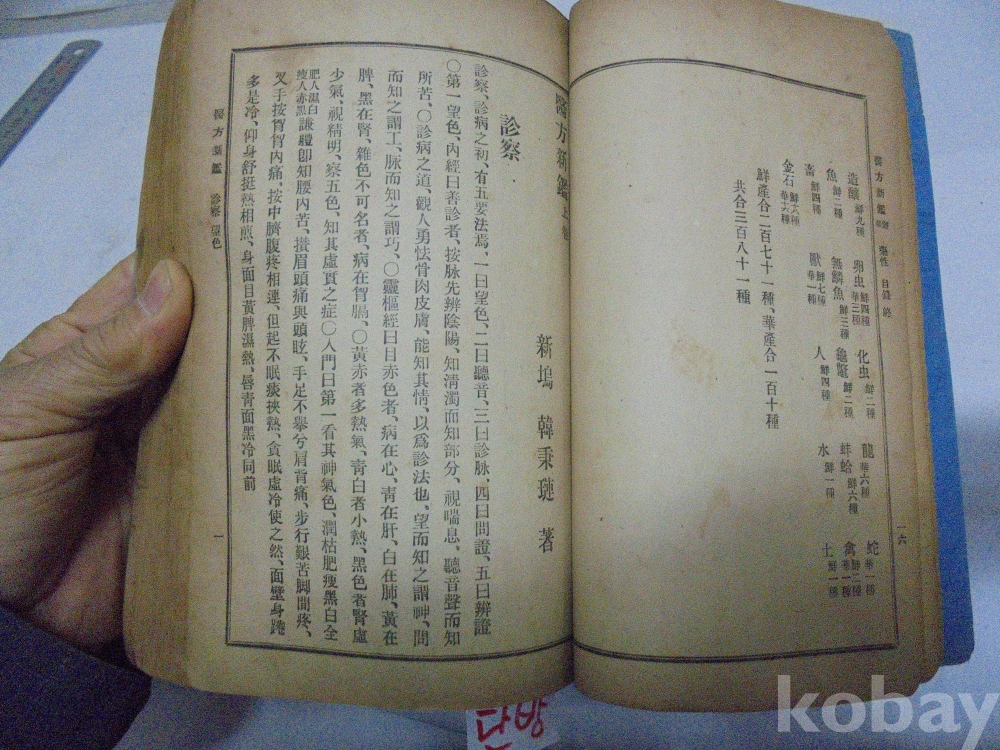 醫方新鑑 藥性 目錄 終 一六
造釀 鮮九種 卵虫 鮮四種 華三種 化虫 鮮二種 龍 華六種 蛇 華一種
魚 鮮二種 無鱗魚 鮮三種 龜鼈 鮮二種 蚌蛤 鮮六種 禽 鮮二種 華一種
畜 鮮四種 獸 鮮七種 華一種 人 鮮四種 水 鮮一種 土 鮮一種
金石 鮮六種 華六種
鮮產合二百七十一種、華產合一百十種
共合三百八十一種
醫方新鑑 上卷
新塢 韓秉璉 著
診察
診察、診病之初、有五要法焉、一曰望色、二曰聽音、三曰診脉、四曰問證、五曰辨證
〇第一望色、內經曰善診者、按脉先辨陰陽、知淸濁而知部分、視喘息、聽音聲而知
所苦、〇診病之道、觀人勇怯骨肉皮膚、能知其情、以爲診法也、望而知之謂神、問
而知之謂工、脉而知之謂巧、〇靈樞經曰目赤色者、病在心、靑在肝、白在肺、黃在
脾、黑在腎、雜色不可名者、病在胷膈、〇黃赤者多熱氣、靑白者小熱、黑色者腎虛
少氣、視精明、察五色、知其虛實之症〇入門曰第一看其神氣色、潤枯肥瘦黑白全
肥人濕白 瘦人赤黑 謙體卽知腰內苦、攢眉頭痛與頭眩、手足不擧兮肩背痛、步行艱苦脚間疼、
叉手按胷胷內痛、按中臍腹疼相連、但起不眠痰挾熱、貪眠虛冷使之然、面壁身踡
多是冷、仰身舒挺熱相煎、身面目黃脾濕熱、唇靑面黑冷同前
醫方新鑑 診察 望色 一
단방
kobay